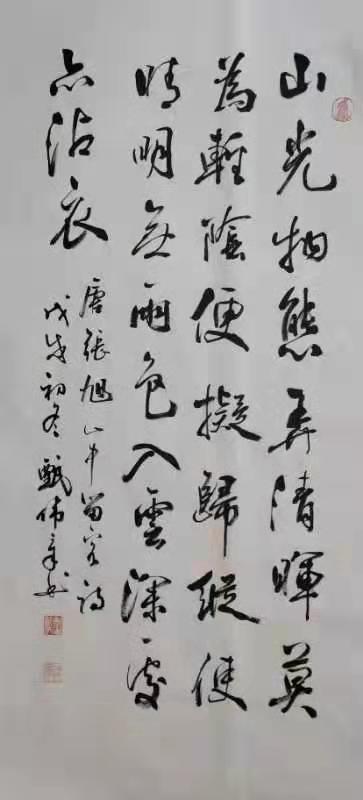 山光物態弄清暉莫
為輕陰便擬歸縱使
晴明無雨色入雲深處
亦沾衣
唐張旭山中留客詩
戊戌初冬甄伟书